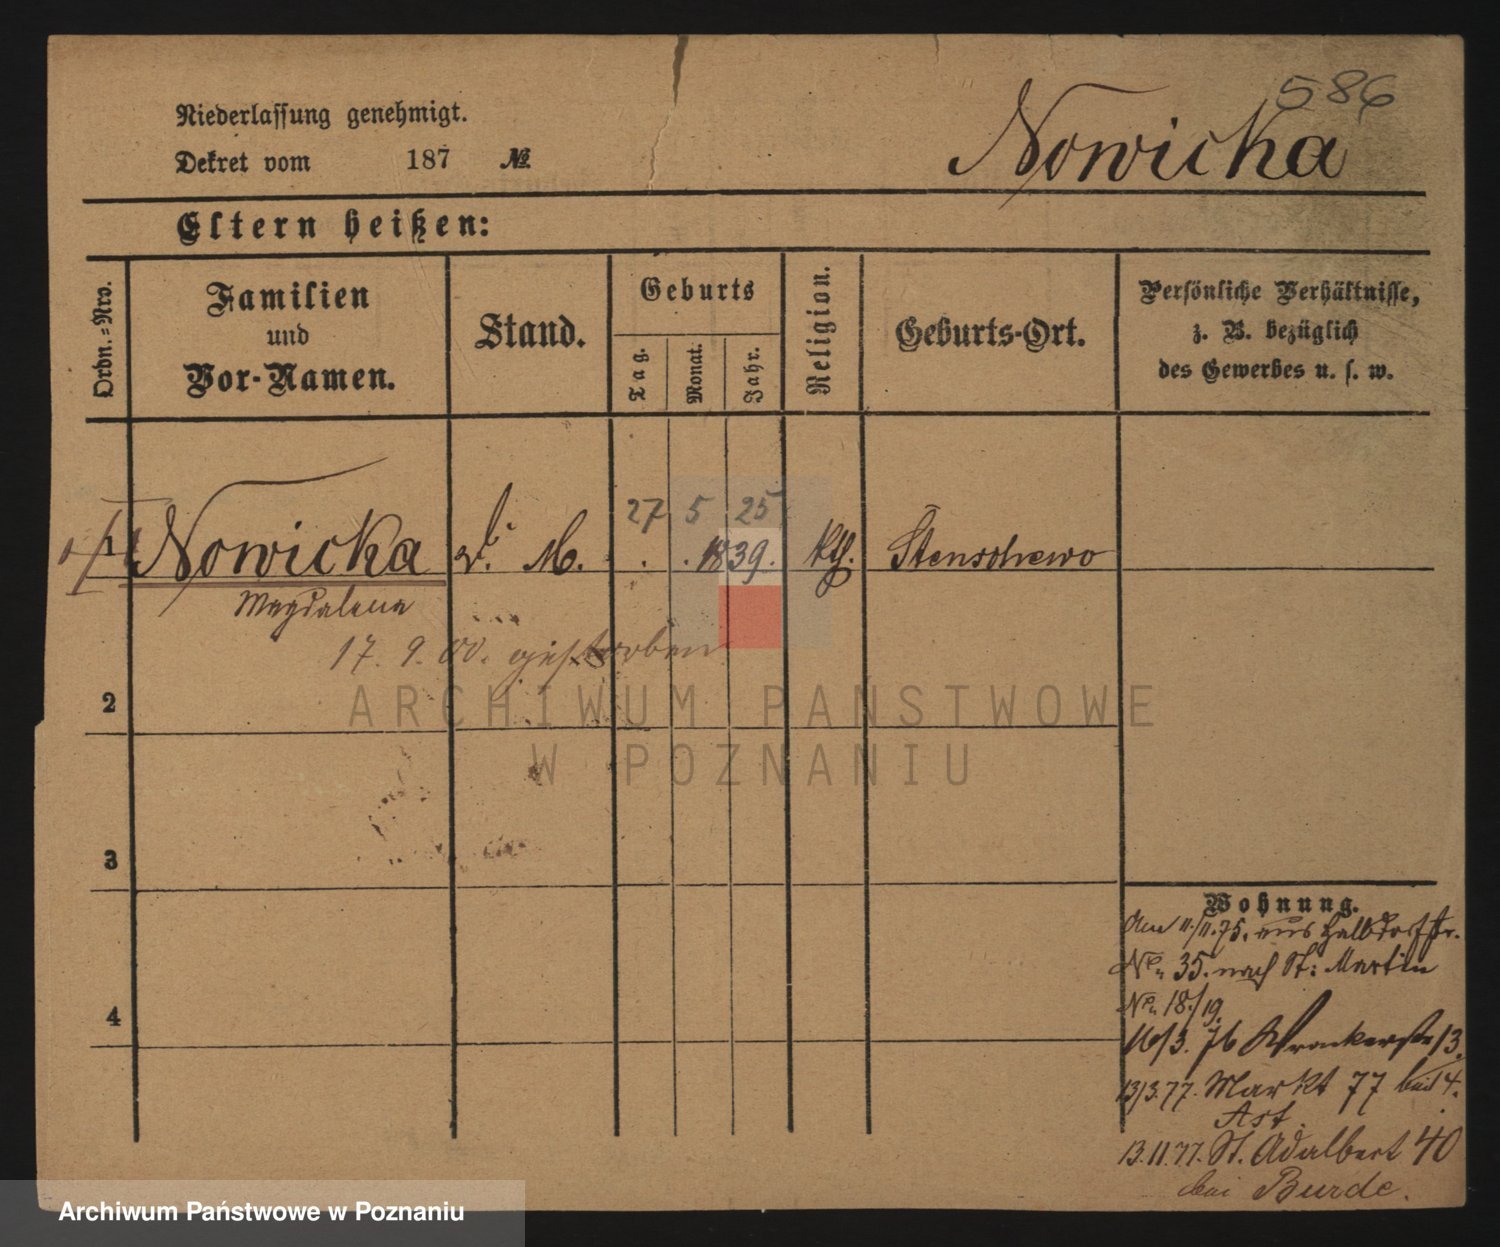 586
Niederlassung genehmigt.
Nowicka
Dekret vom 187 №
Eltern heißen:
Ordn.-Nro.
Familien
und
Vor-Namen.
Stand.
Geburts
Tag.
Monat.
Jahr.
Religion.
Geburts-Ort.
Persönliche Verhältnisse,
z. B. bezüglich
des Gewerbes u. s. w.
27 5 25
1 Nowicka M. 1839. kth. Stenschewo
Magdalena
17. 9. 00. gestorben
2
ARCHIWUM PAŃSTWOWE
W POZNANIU
3
Wohnung.
Am 11./11.75. aus Halbdorfstr.
No. 35. nach St: Martin
No. 18./19.
16/3. 76 Wronkerstr 13.
13/3.77. Markt 77 bei
13.11.77. St. Adalbert 40
bei Burde.
4
Archiwum Państwowe w Poznaniu